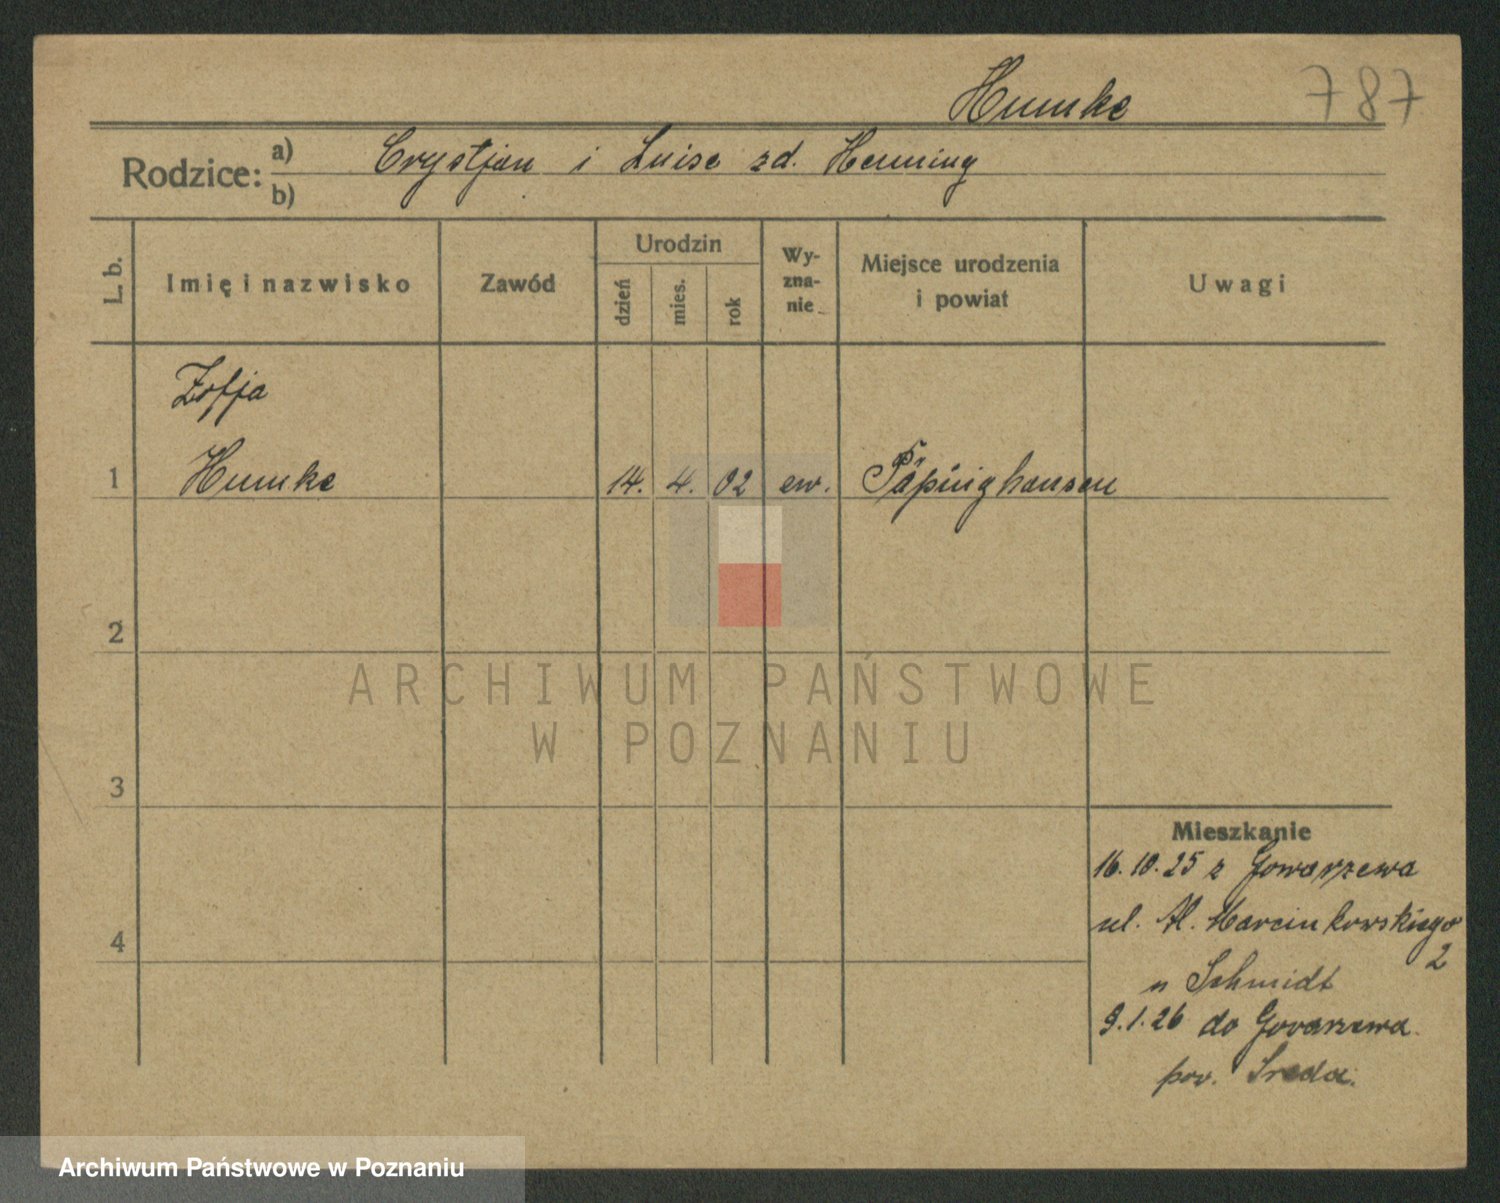 Humke 787
Rodzice: a) Crystjan i Luise zd. Henning
b)
L. b. Imię i nazwisko Zawód Urodzin dzień mies. rok Wyznanie Miejsce urodzenia i powiat Uwagi
Zofja
1 Humke 14. 4. 02 ew. Päpinghausen
2
ARCHIWUM PAŃSTWOWE
W POZNANIU
3
Mieszkanie
16.10.25 z Gowarzewa
ul. Al. Marcinkowskiego
2
4
u Schmidt
9.1.26 do Gowarzewa
pow. Środa.
Archiwum Państwowe w Poznaniu